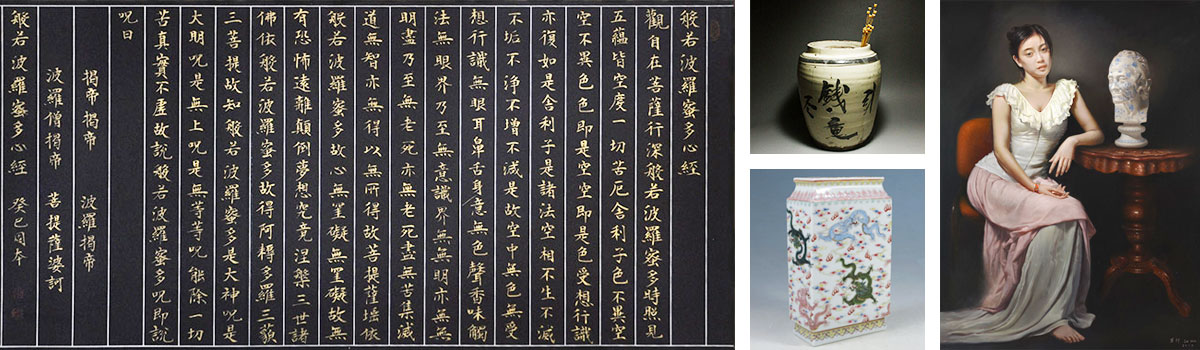 般若波羅蜜多心經
觀自在菩薩行深般若波羅蜜多時照見
五蘊皆空度一切苦厄舍利子色不異空
空不異色色即是空空即是色受想行識
亦復如是舍利子是諸法空相不生不滅
不垢不淨不增不減是故空中無色無受
想行識無眼耳鼻舌身意無色聲香味觸
法無眼界乃至無意識界無無明亦無無
明盡乃至無老死亦無老死盡無苦集滅
道無智亦無得以無所得故菩提薩埵依
般若波羅蜜多故心無罣礙無罣礙故無
有恐怖遠離顛倒夢想究竟涅槃三世諸
佛依般若波羅蜜多故得阿耨多羅三藐
三菩提故知般若波羅蜜多是大神呪是
大明呪是無上呪是無等等呪能除一切
苦真實不虛故說般若波羅蜜多呪即說
呪曰
揭帝揭帝　波羅揭帝
波羅僧揭帝　菩提薩婆訶
般若波羅蜜多心經　癸巳
錢